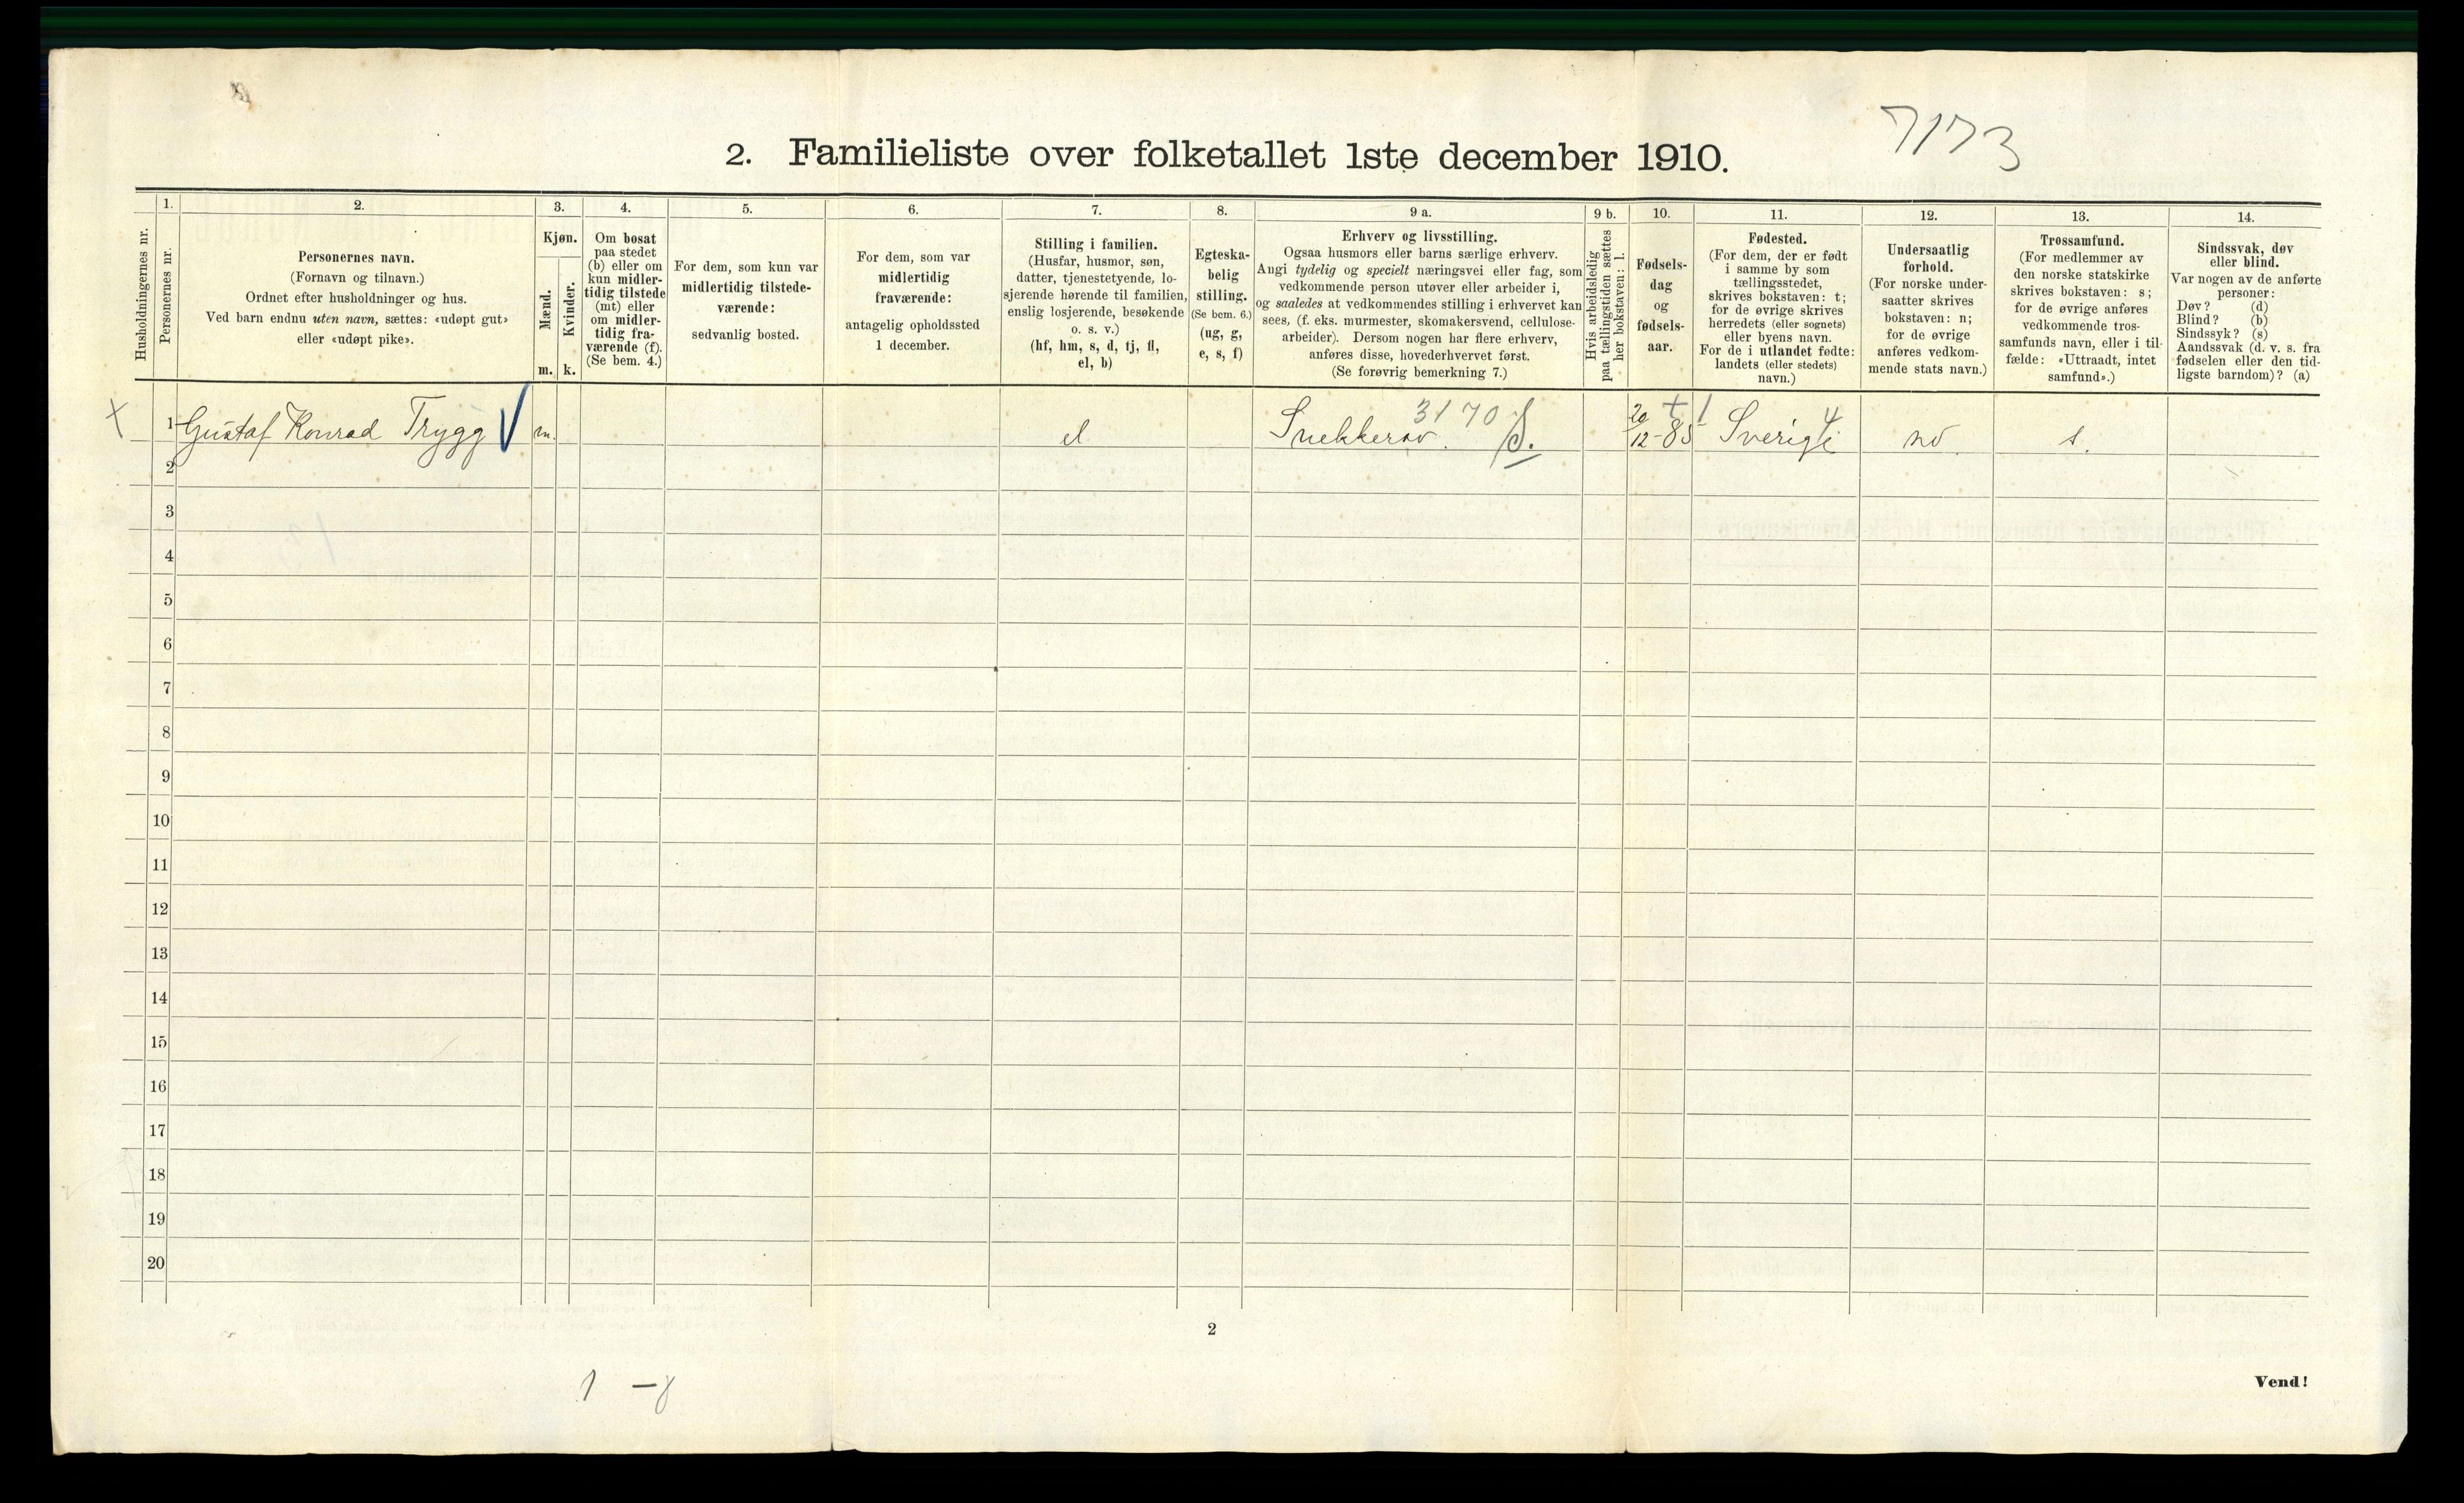 7173
2. Familieliste over folketallet 1ste december 1910.
Husholdningernes nr.
1.
Personernes nr.
2.
Personernes navn.
(Fornavn og tilnavn.)
Ordnet efter husholdninger og hus.
Ved barn endnu uten navn, sættes: «udøpt gut»
eller «udøpt pike».
3.
Kjøn.
Mænd.
Kvinder.
m. k.
4.
Om bosat
paa stedet
(b) eller om
kun midler-
tidig tilstede
(mt) eller
om midler-
tidig fra-
værende (f).
(Se bem. 4.)
5.
For dem, som kun var
midlertidig tilstede-
værende:
sedvanlig bosted.
6.
For dem, som var
midlertidig
fraværende:
antagelig opholdssted
1 december.
7.
Stilling i familien.
(Husfar, husmor, søn,
datter, tjenestetyende, lo-
sjerende hørende til familien,
enslig losjerende, besøkende
o. s. v.)
(hf, hm, s, d, tj, fl,
el, b)
8.
Egteska-
belig
stilling.
(Se bem. 6.)
(ug, g,
e, s, f)
9 a.
Erhverv og livsstilling.
Ogsaa husmors eller barns særlige erhverv.
Angi tydelig og specielt næringsvei eller fag, som
vedkommende person utøver eller arbeider i,
og saaledes at vedkommendes stilling i erhvervet kan
sees, (f. eks. murmester, skomakersvend, cellulose-
arbeider). Dersom nogen har flere erhverv,
anføres disse, hovederhvervet først.
(Se forøvrig bemerkning 7.)
9 b.
Hvis arbeidsledig
paa tællingstiden sættes
her bokstaven: l.
10.
Fødsels-
dag
og
fødsels-
aar.
11.
Fødested.
(For dem, der er født
i samme by som
tællingsstedet,
skrives bokstaven: t;
for de øvrige skrives
herredets (eller sognets)
eller byens navn.
For de i utlandet fødte:
landets (eller stedets)
navn.)
12.
Undersaatlig
forhold.
(For norske under-
saatter skrives
bokstaven: n;
for de øvrige
anføres vedkom-
mende stats navn.)
13.
Trossamfund.
(For medlemmer av
den norske statskirke
skrives bokstaven: s;
for de øvrige anføres
vedkommende tros-
samfunds navn, eller i til-
fælde: «Uttraadt, intet
samfund».)
14.
Sindssvak, døv
eller blind.
Var nogen av de anførte
personer:
Døv? (d)
Blind? (b)
Sindssyk? (s)
Aandssvak (d. v. s. fra
fødselen eller den tid-
ligste barndom)? (a)
3170 4
1 Gustaf Konrad Trygg m. el Snekkersv. S. 20/12-85 Sverige s.
2
3
4
5
6
7
8
9
10
11
12
13
14
15
16
17
18
19
20
2
1 –
Vend!